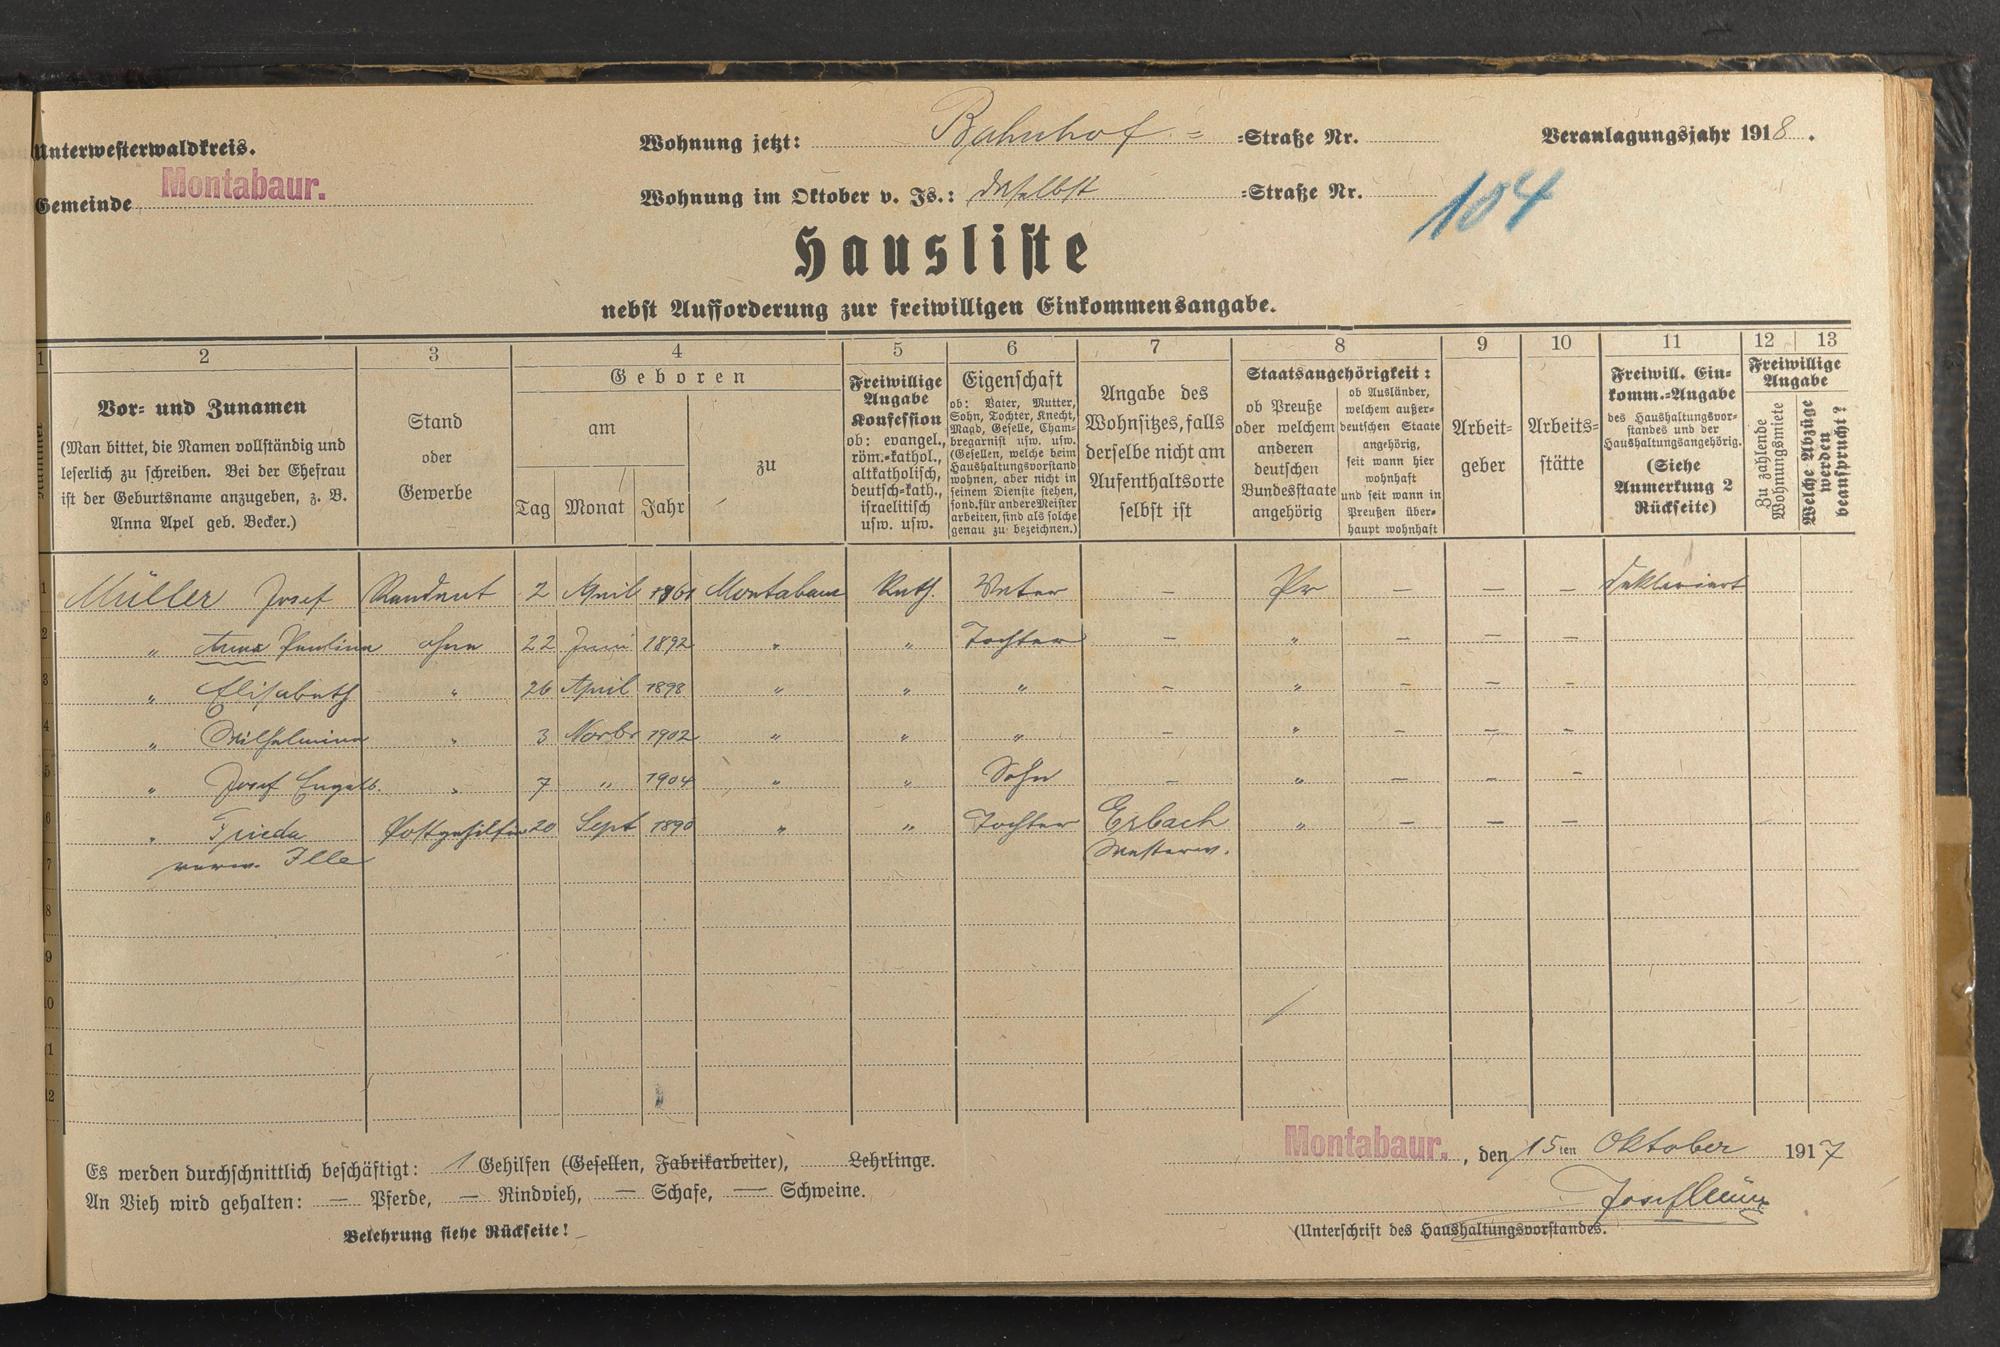 Unterwesterwaldkreis.
Wohnung jetzt: Bahnhof- =Straße Nr.
Veranlagungsjahr 1918.
Gemeinde Montabaur.
Wohnung im Oktober v. Js.: daselbst =Straße Nr.
104
Hausliste
nebst Aufforderung zur freiwilligen Einkommensangabe.
1 2 3 4 5 6 7 8 9 10 11 12 13
Nummer
Vor- und Zunamen
(Man bittet, die Namen vollständig und
leserlich zu schreiben. Bei der Ehefrau
ist der Geburtsname anzugeben, z. B.
Anna Apel geb. Becker.)
Stand
oder
Gewerbe
Geboren
am
Tag Monat Jahr
zu
Freiwillige
Angabe
Konfession
ob: evangel.,
röm.-kathol.,
altkatholisch,
deutsch-kath.,
israelitisch
usw. usw.
Eigenschaft
ob: Vater, Mutter,
Sohn, Tochter, Knecht,
Magd, Geselle, Cham-
bregarnist usw. usw.
(Gesellen, welche beim
Haushaltungsvorstand
wohnen, aber nicht in
seinem Dienste stehen,
sond. für andere Meister
arbeiten, sind als solche
genau zu bezeichnen.)
Angabe des
Wohnsitzes, falls
derselbe nicht am
Aufenthaltsorte
selbst ist
Staatsangehörigkeit:
ob Preuße
oder welchem
anderen
deutschen
Bundesstaate
angehörig
ob Ausländer,
welchem außer-
deutschen Staate
angehörig,
seit wann hier
wohnhaft
und seit wann in
Preußen über-
haupt wohnhaft
Arbeit-
geber
Arbeits-
stätte
Freiwill. Ein-
komm.-Angabe
des Haushaltungsvor-
standes und der
Haushaltungsangehörig.
(Siehe
Anmerkung 2
Rückseite)
Freiwillige
Angabe
Zu zahlende
Wohnungsmiete
Welche Abzüge
werden
beansprucht?
1 Müller Josef Rendant 2 April 1861 Montabaur Kath. Vater — Pr — — — deklariert
2 " Anna Paulina ohne 22 Juni 1892 " " Tochter — " — — —
3 " Elisabeth " 26 April 1898 " " " — " — — —
4 " Wilhelmina " 3 Novbr 1902 " " " — " — — —
5 " Josef Engelb. " 7 " 1904 " " Sohn — " — — —
6 " Frieda Postgehilfin 20 Sept 1890 " " Tochter Erbach " — — —
7 verw. Ille Westerw.
8
9
10
11
12
Es werden durchschnittlich beschäftigt: 1 Gehilfen (Gesellen, Fabrikarbeiter), Lehrlinge.
An Vieh wird gehalten: — Pferde, — Rindvieh, — Schafe, — Schweine.
Belehrung siehe Rückseite!
Montabaur., den 15ten Oktober 1917
Josef Müller
(Unterschrift des Haushaltungsvorstandes.